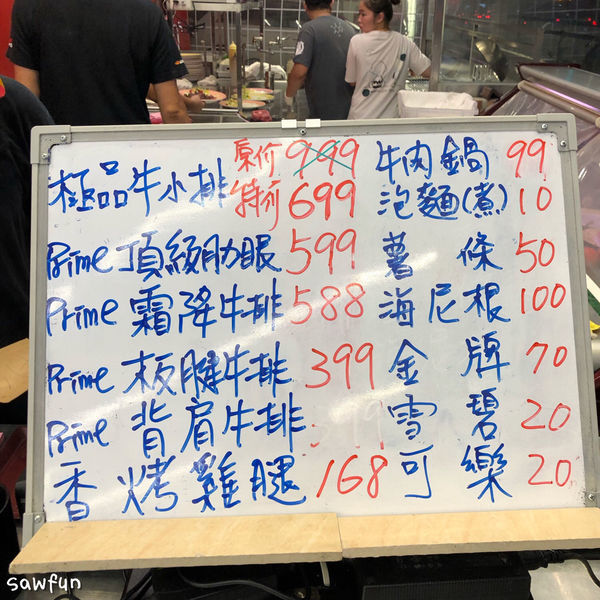 極品牛小排 原价 999
特价 699
Prime 頂級肋眼 599
Prime 霜降牛排 588
Prime 板腱牛排 399
Prime 背肩牛排
香烤雞腿 168
牛肉鍋 99
泡麵(煮) 10
薯條 50
海尼根 100
金牌 70
雪碧 20
可樂 20
sawfun